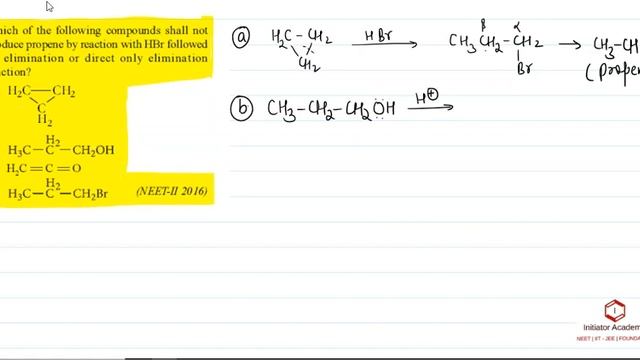 hich of the following compounds shall not
oduce propene by reaction with HBr followed
elimination or direct only elimination
ction?
H₂C—CH₂
C
H₂
H₂
H₃C—C—CH₂OH
H₂C=C=O
H₂
H₃C—C—CH₂Br (NEET-II 2016)
ⓐ H₂C–CH₂ HBr CH₃CH₂–CH₂ → CH₃–CH
CH₂ β α Br (Propen
ⓑ CH₃–CH₂–CH₂ÖH H⊕
Initiator Academ
NEET | IIT - JEE | FOUNDA